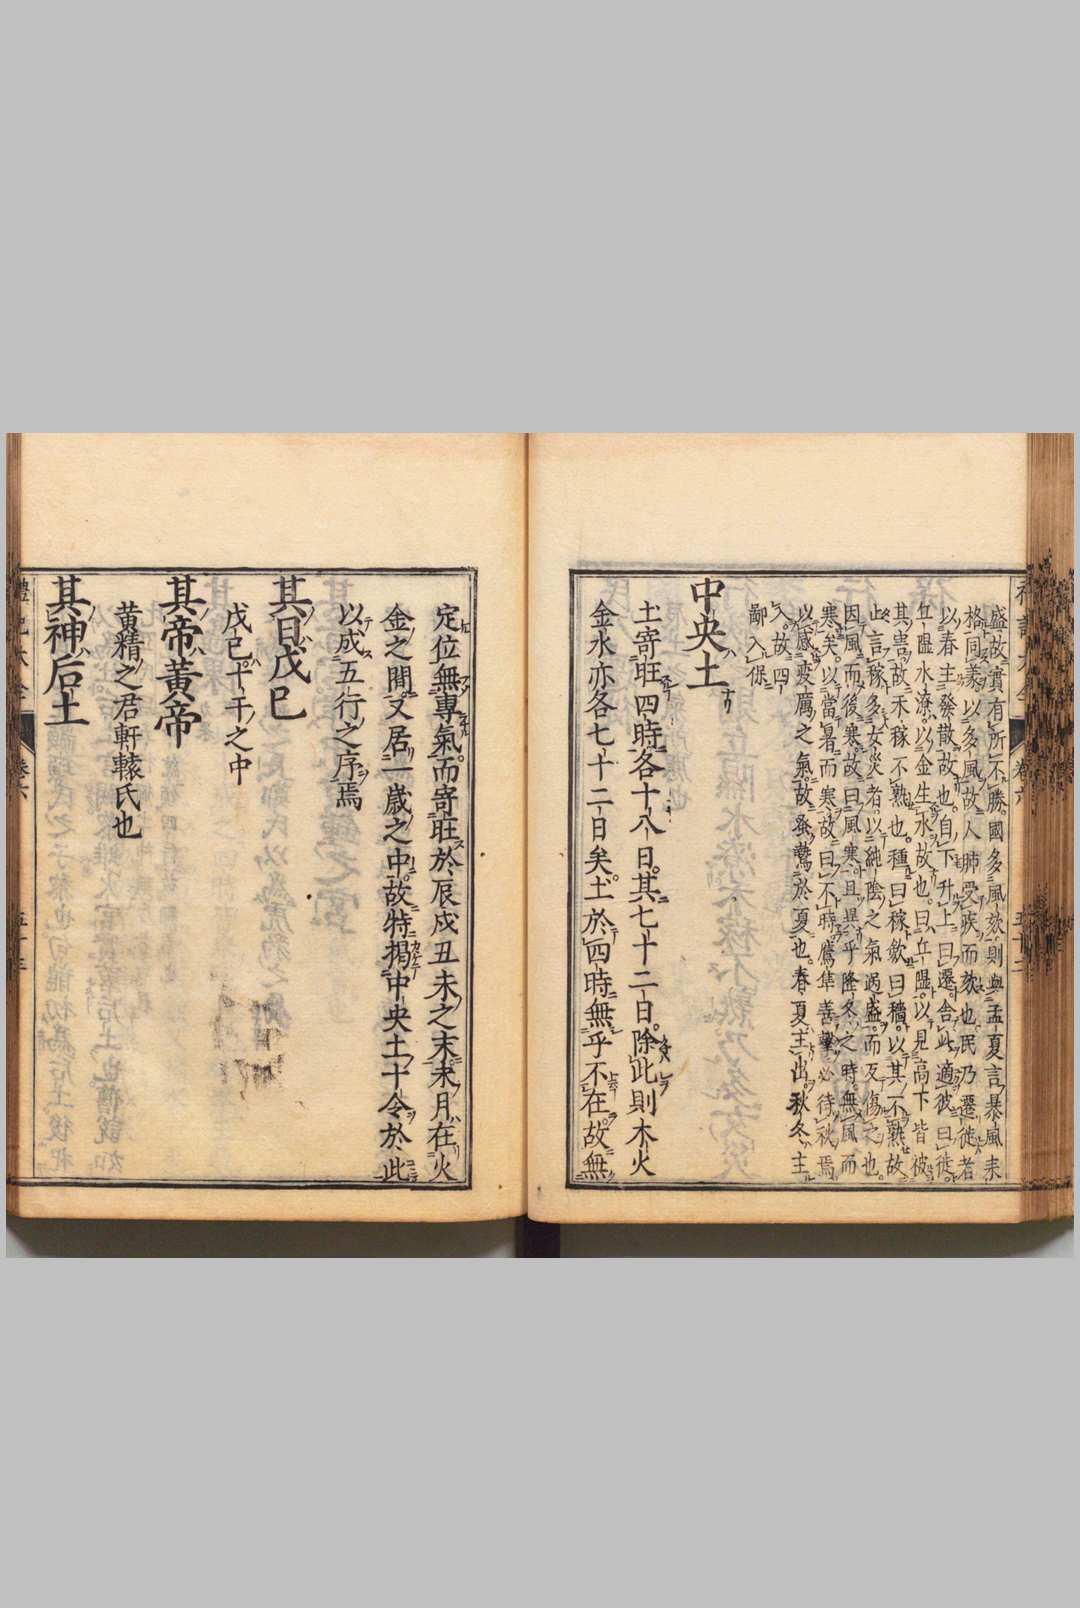 盛故實有所不勝國多風欬則與孟夏言暴風来
格同義以多風故人肺受疾而欬也民乃遷徙者
以春主發散故也自下升上曰遷舎此適彼曰徙
丘隰水潦以金生水故也曰丘隰以見高下皆被
其害故禾稼不熟也種曰稼斂曰穡以其不熟故
此言稼多女災者以純陰之氣過盛而反傷之也
因風而後寒故曰風寒且異乎隆冬之時無風而
寒矣以當暑而寒故曰不時鷹隼善擊必待秋焉
以感變厲之氣故蚤鷙於夏也春夏主出秋冬主
入故四
鄙入保
中央土
土寄旺四時各十八日其七十二日除此則木火
金水亦各七十二日矣土於四時無乎不在故無
定位無專氣而寄旺於辰戌丑未之末未月在火
金之間又居一歲之中故特揭中央土一令於此
以成五行之序焉
其日戊己
戊己十干之中
其帝黃帝
黃精之君軒轅氏也
其神后土